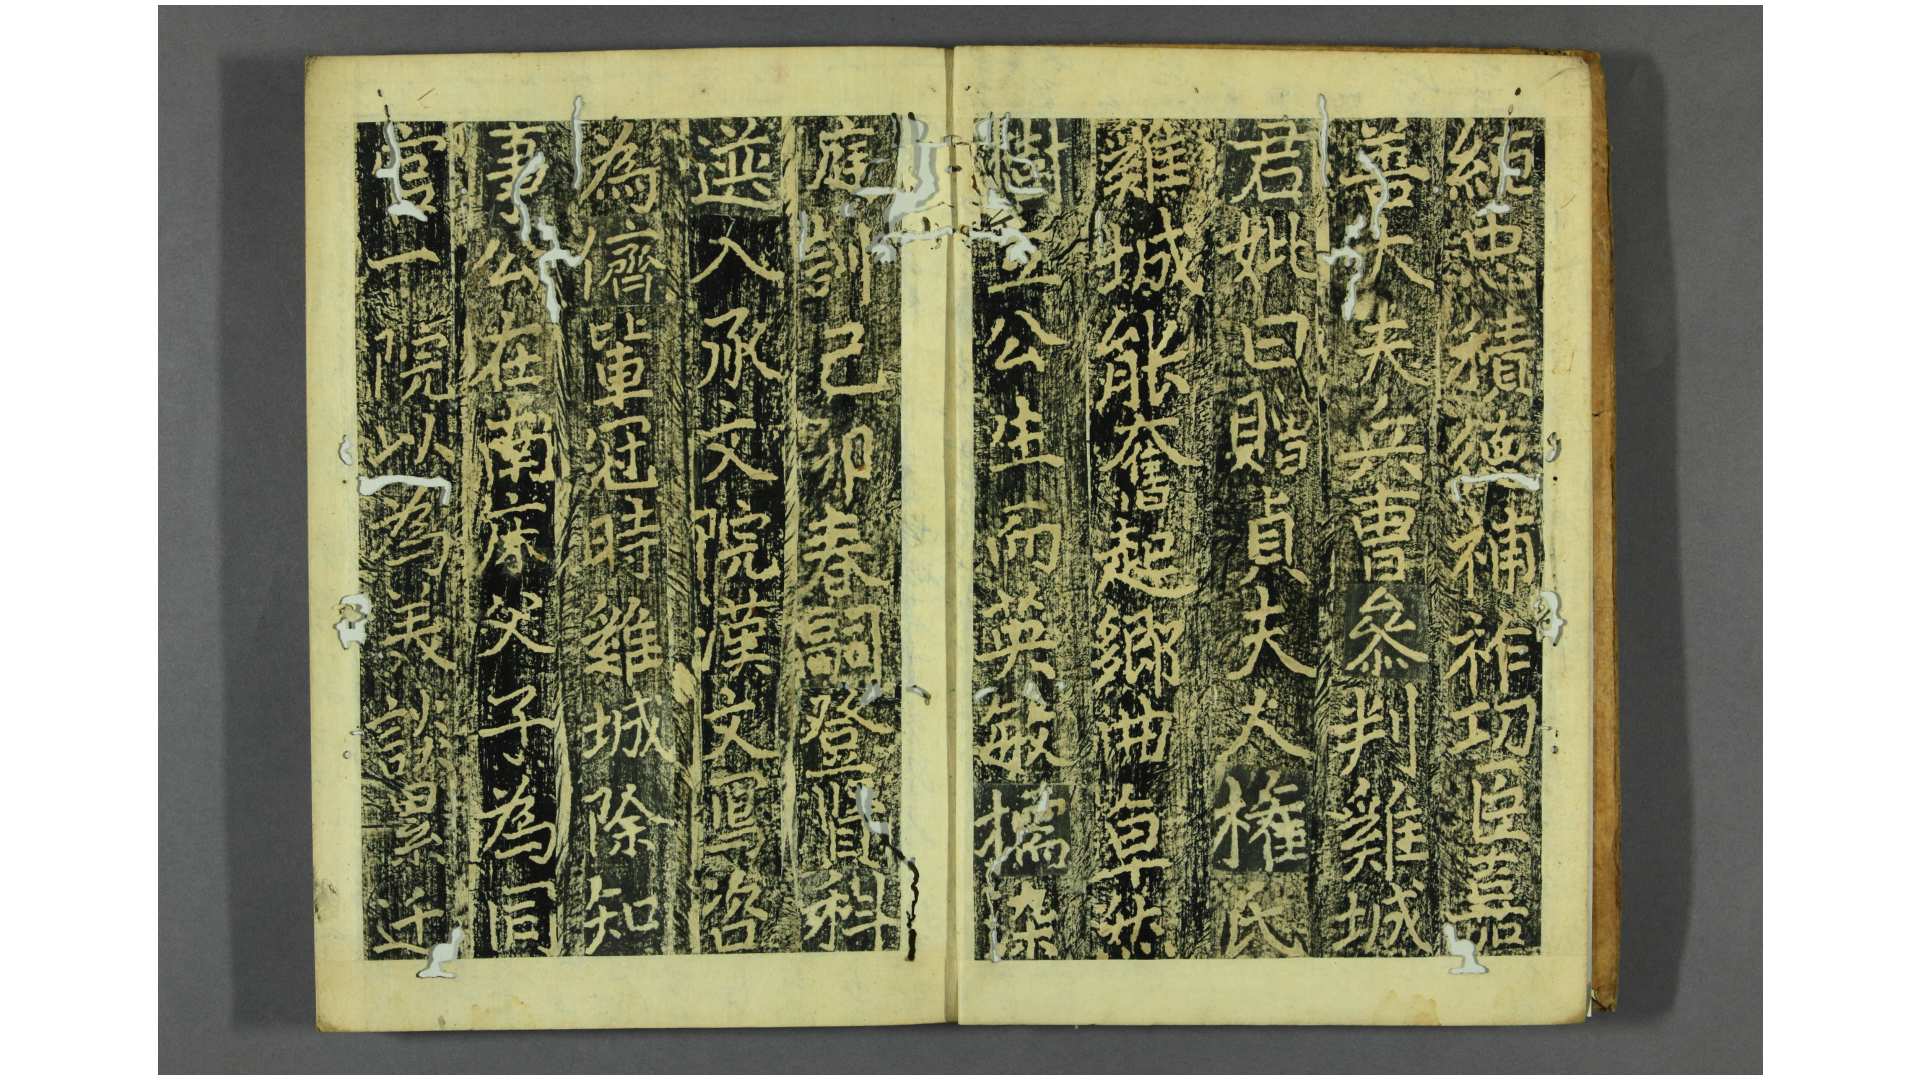 純忠積德補祚功臣嘉
善大夫兵曹參判雞城
君妣曰贈貞夫人權氏
雞城能奮起鄉曲卓然
樹立公生而英敏擩染
庭訓己卯春嗣登晉科
選入承文院漢文寫咨
為儕輩冠時雞城除知
事公在南床父子為同
官一院以為美談累迁